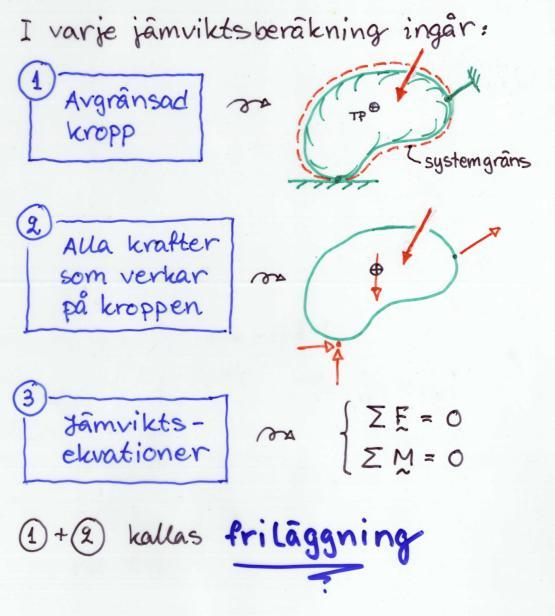 I varje jämviktsberäkning ingår:
1
Avgränsad
kropp
TP
systemgräns
2
Alla krafter
som verkar
på kroppen
3
Jämvikts-
ekvationer
Σ F = 0
Σ M = 0
1 + 2 kallas friläggning